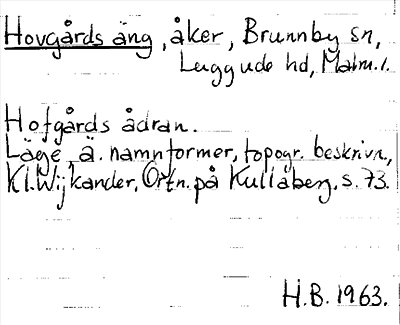 Hovgårds äng, åker, Brunnby sn,
Luggude hd, Malm. l.
Hofgårds ådran.
Läge, ä. namnformer, topogr. beskrivn.,
Kl. Wijkander, Ortn. på Kullaberg, s. 73.
H.B. 1963.